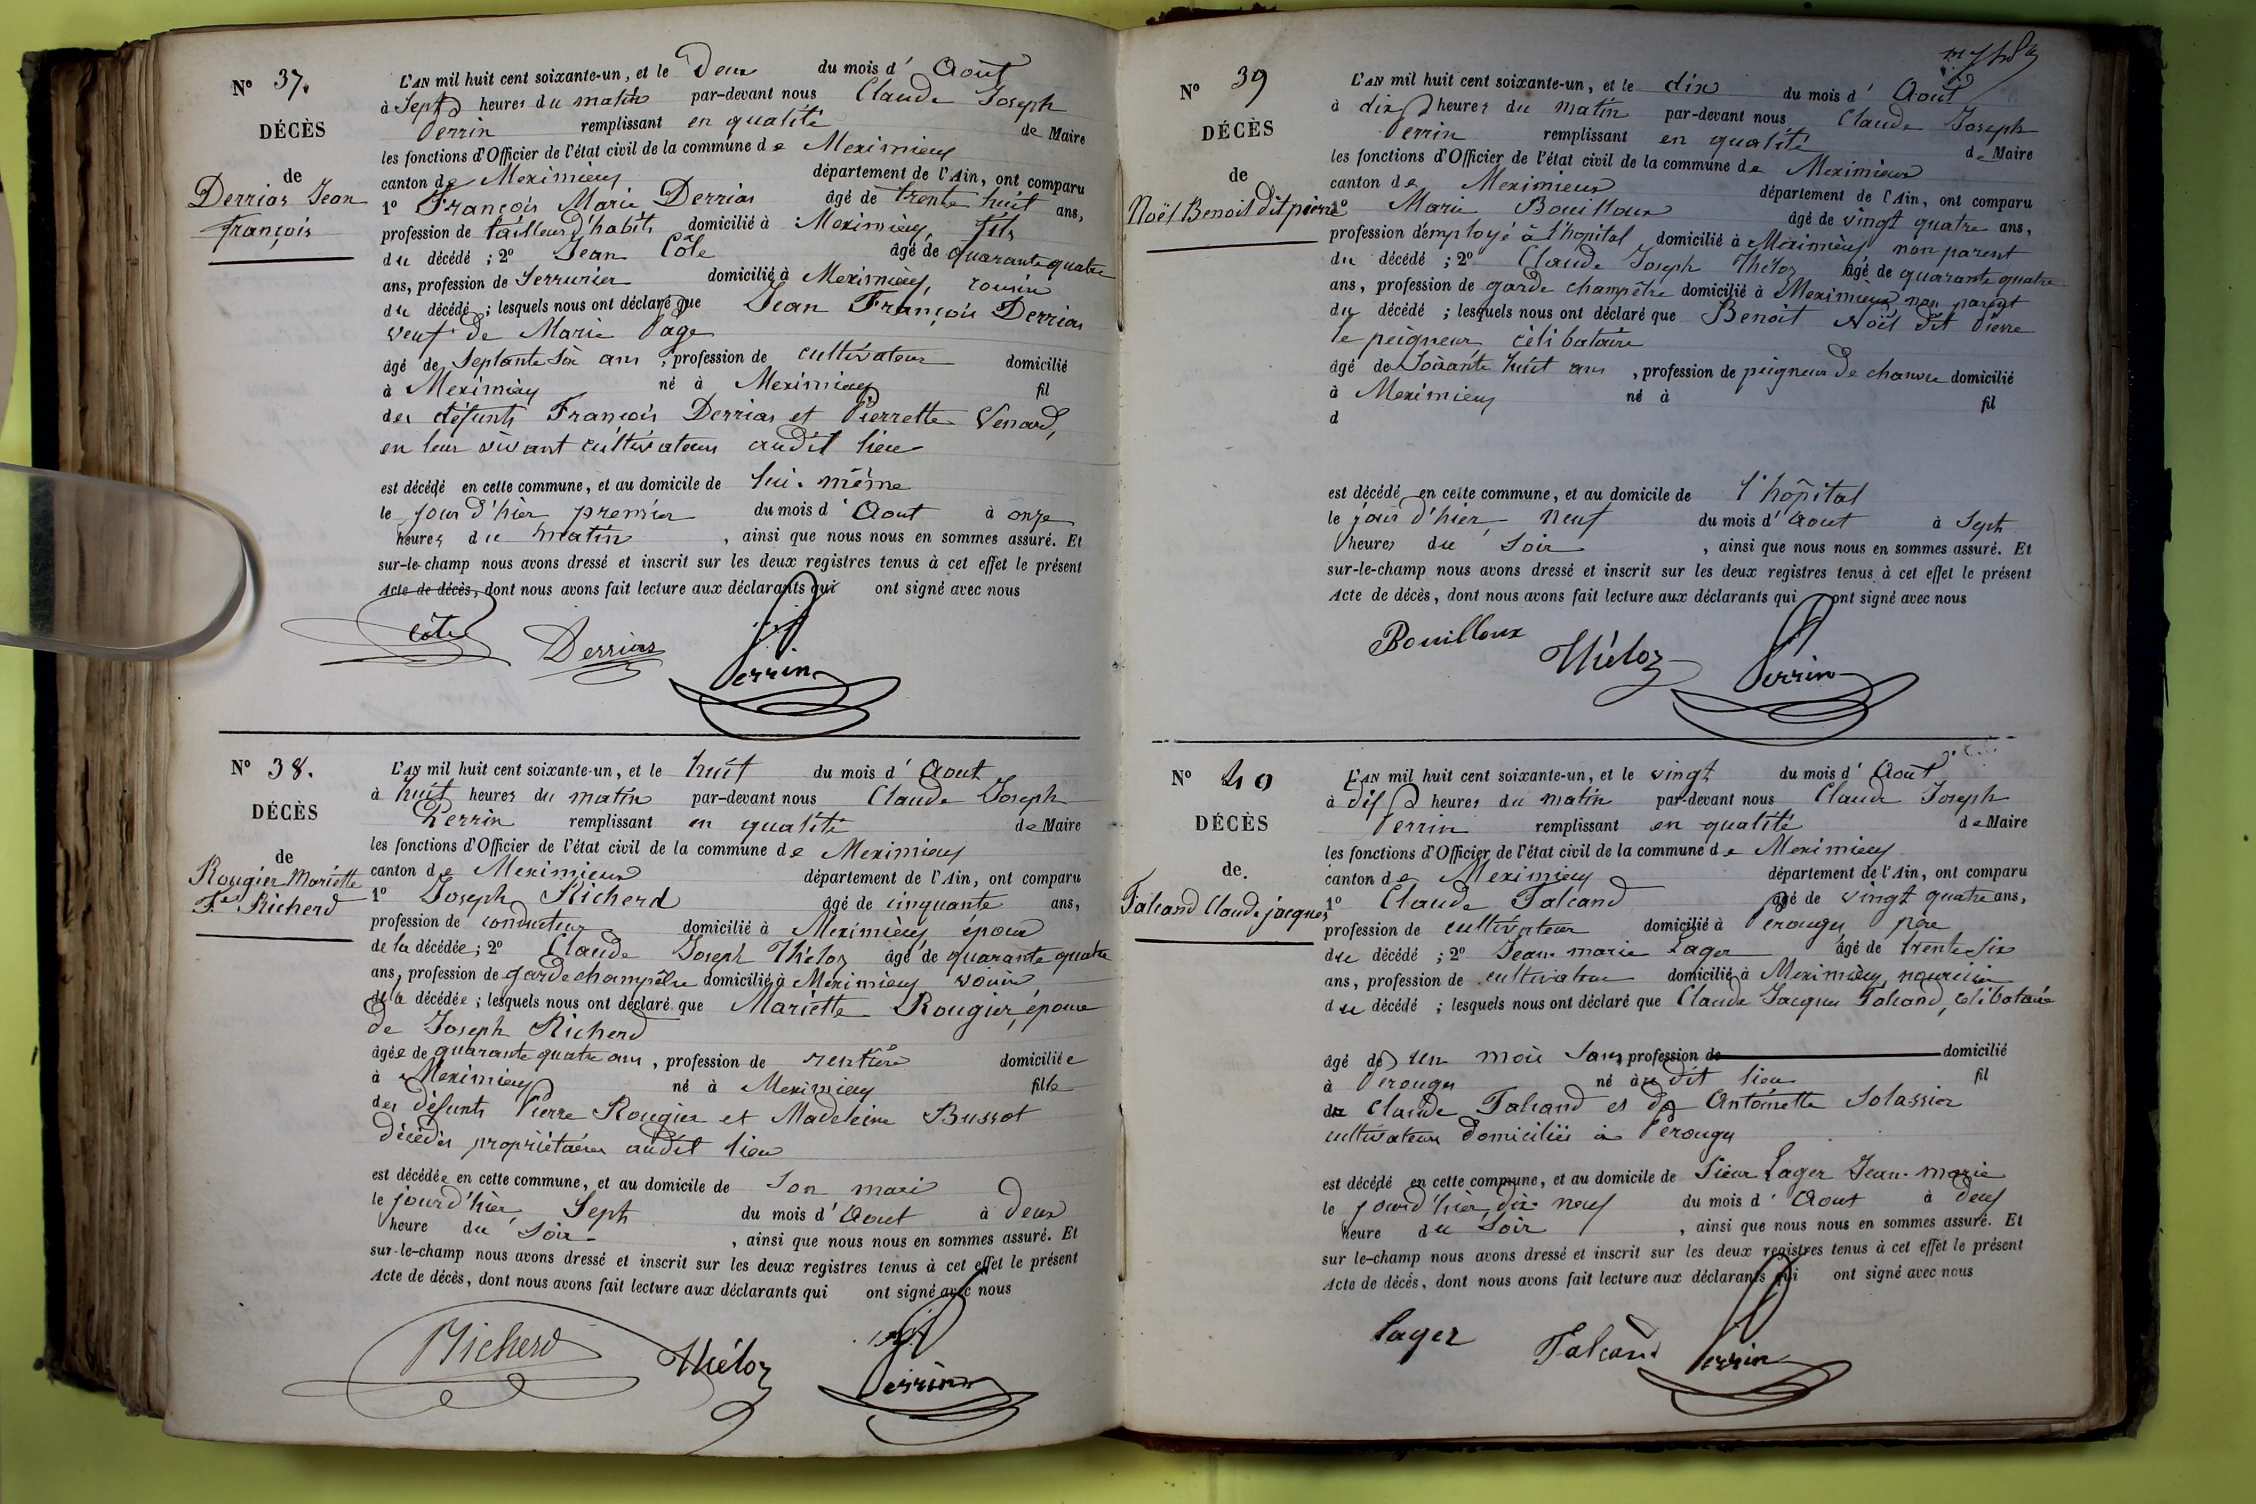 N° 37.
DÉCÈS
de
Derrias Jean
François
L'AN mil huit cent soixante-un, et le Deux du mois d' Août
à Sept heures du matin par-devant nous Claude Joseph
Perrin remplissant en qualité de Maire
les fonctions d'Officier de l'état civil de la commune de Meximieux
canton de Meximieux département de l'Ain, ont comparu
1° François Marie Derrias âgé de trente huit ans,
profession de tailleur d'habits domicilié à Meximieux, fils
du décédé ; 2° Jean Côte âgé de quarante quatre
ans, profession de Serrurier domicilié à Meximieux, cousin
du décédé ; lesquels nous ont déclaré que Jean François Derrias
veuf de Marie Page
âgé de Septante Six ans , profession de cultivateur domicilié
à Meximieux né à Meximieux fil
des défunts François Derrias et Pierrette Venard,
en leur vivant cultivateurs audit lieu
est décédé en cette commune, et au domicile de lui-même
le jour d'hier premier du mois d' Aout à onze
heures du matin , ainsi que nous nous en sommes assuré. Et
sur-le-champ nous avons dressé et inscrit sur les deux registres tenus à cet effet le présent
Acte de décès, dont nous avons fait lecture aux déclarants qui ont signé avec nous
Côte Derrias Perrin
N° 38.
DÉCÈS
de
Rougier Mariette
Fe Richerd
L'AN mil huit cent soixante-un, et le huit du mois d' Aout
à huit heures du matin par-devant nous Claude Joseph
Perrin remplissant en qualité de Maire
les fonctions d'Officier de l'état civil de la commune de Meximieux
canton de Meximieux département de l'Ain, ont comparu
1° Joseph Richerd âgé de cinquante ans,
profession de conducteur domicilié à Meximieux époux
de la décédée ; 2° Claude Joseph Théloz âgé de quarante quatre
ans, profession de garde champêtre domicilié à Meximieux voisin
de la décédée ; lesquels nous ont déclaré que Mariette Rougier, épouse
de Joseph Richerd
âgée de quarante quatre ans , profession de rentière domiciliée
à Meximieux né à Meximieux fille
des défunts Pierre Rougier et Madeleine Bussot
décédés propriétaires audit lieu
est décédée en cette commune, et au domicile de Son mari
le jourd'hier Sept du mois d' Aout à Deux
heure du Soir , ainsi que nous nous en sommes assuré. Et
sur-le-champ nous avons dressé et inscrit sur les deux registres tenus à cet effet le présent
Acte de décès, dont nous avons fait lecture aux déclarants qui ont signé avec nous
Richerd Théloz Perrin
N° 39
DÉCÈS
de
Noël Benoit dit pierre
L'AN mil huit cent soixante-un, et le dix du mois d' Août
à dix heures du matin par-devant nous Claude Joseph
Perrin remplissant en qualité de Maire
les fonctions d'Officier de l'état civil de la commune de Meximieux
canton de Meximieux département de l'Ain, ont comparu
1° Marie Bouilloux âgé de vingt quatre ans,
profession d'employé à l'hopital domicilié à Meximieux non parent
du décédé ; 2° Claude Joseph Théloz âgé de quarante quatre
ans, profession de garde champêtre domicilié à Meximieux non parent
du décédé ; lesquels nous ont déclaré que Benoit Noël dit Pierre
le peigneur célibataire
âgé de Soixante huit ans , profession de peigneur de chanvre domicilié
à Meximieux né à fil
d
est décédé en cette commune, et au domicile de l'hôpital
le jour d'hier neuf du mois d' Aout à Sept
heures du Soir , ainsi que nous nous en sommes assuré. Et
sur-le-champ nous avons dressé et inscrit sur les deux registres tenus à cet effet le présent
Acte de décès, dont nous avons fait lecture aux déclarants qui ont signé avec nous
Bouilloux Théloz Perrin
N° 40
DÉCÈS
de
Falcand Claude jacques
L'AN mil huit cent soixante-un, et le vingt du mois d' Aout
à dix heures du matin par-devant nous Claude Joseph
Perrin remplissant en qualité de Maire
les fonctions d'Officier de l'état civil de la commune de Meximieux
canton de Meximieux département de l'Ain, ont comparu
1° Claude Falcand âgé de vingt quatre ans,
profession de cultivateur domicilié à Perouges père
du décédé ; 2° Jean marie Lager âgé de trente Six
ans, profession de cultivateur domicilié à Meximieux nouricier
du décédé ; lesquels nous ont déclaré que Claude Jacques Falcand, célibataire
âgé de un mois Sans profession de domicilié
à Perouges né au dit lieu fil
de Claude Falcand et de Antoinette Solassier
cultivateurs domiciliés à Perouges
est décédé en cette commune, et au domicile de Sieur Lager Jean-marie
le jourd'hier dix neuf du mois d' Aout à deux
heure du Soir , ainsi que nous nous en sommes assuré. Et
sur le-champ nous avons dressé et inscrit sur les deux registres tenus à cet effet le présent
Acte de décès, dont nous avons fait lecture aux déclarants qui ont signé avec nous
Lager Falcand Perrin